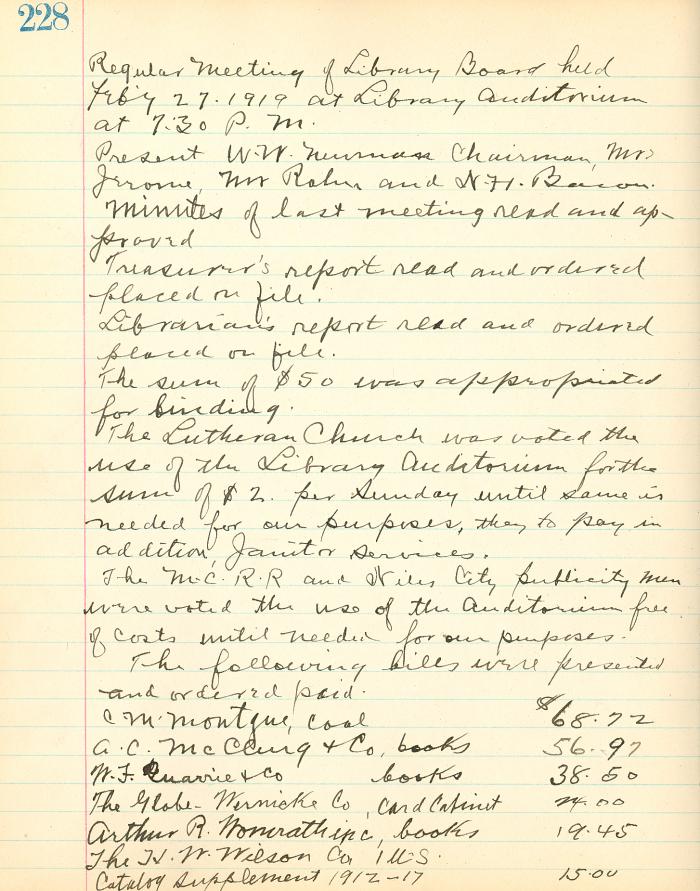 228
Regular Meeting of Library Board held
Feb'y 27. 1919 at Library Auditorium
at 7.30 P. M.
Present W. W. Newman Chairman, Mrs
Jerome, Mr Rahn and N. H. Bacon.
Minutes of last meeting read and ap-
proved
Treasurer's report read and ordered
placed on file.
Librarian's report read and ordered
placed on file.
The sum of $50 was appropriated
for binding.
The Lutheran Church was voted the
use of the Library Auditorium for the
sum of $2. per Sunday until same is
needed for our purposes, they to pay in
addition, Janitor services.
The M. C. R. R and Niles City publicity men
were voted the use of the Auditorium free
of costs until needed for our purposes.
The following bills were presented
and ordered paid.
C M. Montgue, coal $68.72
A. C. McClurg & Co, books 56.97
W. F. Quarrie & Co books 38.50
The Globe-Wernicke Co, Card Cabinet .00
Arthur R. Womrath inc, books 19.45
The H. W. Wilson Co U.S.
Catalog Supplement 1912-17 15.00